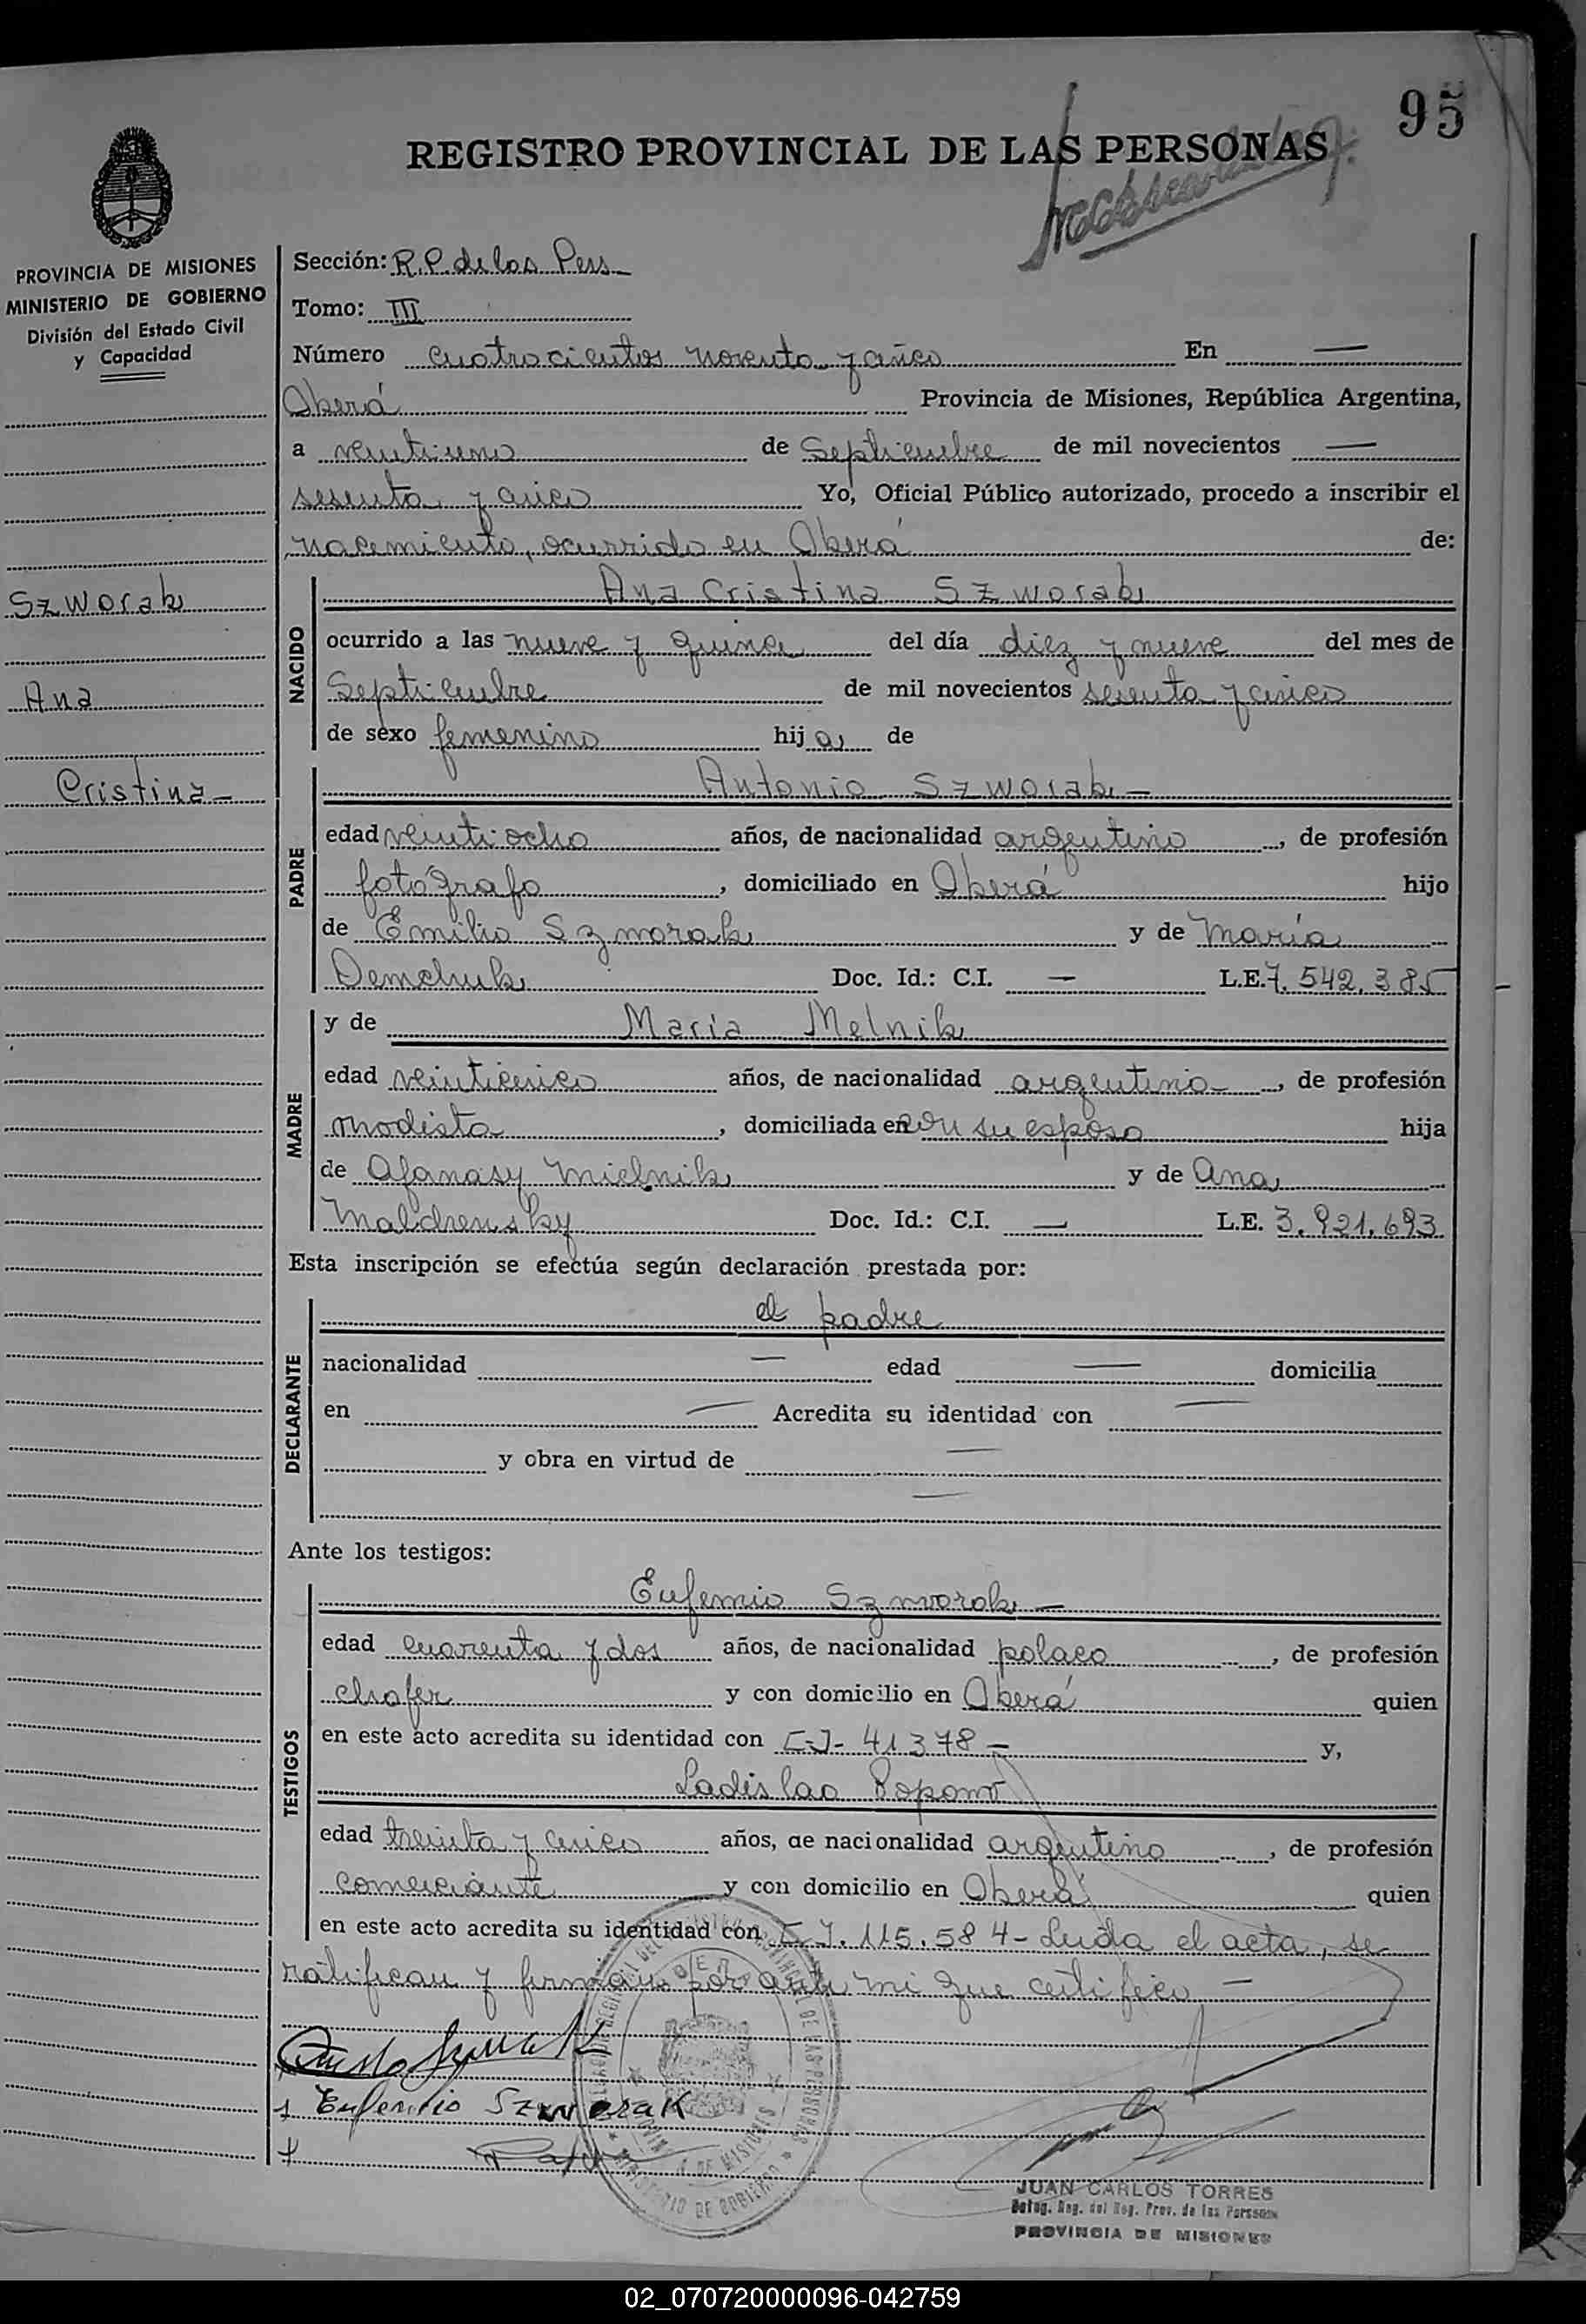 95
REGISTRO PROVINCIAL DE LAS PERSONAS
PROVINCIA DE MISIONES
MINISTERIO DE GOBIERNO
División del Estado Civil
y Capacidad
Szworak
Ana
Cristina -
Sección: R.P. de las Pers
Tomo: III
Número cuatrocientos noventa y cinco En —
Oberá Provincia de Misiones, República Argentina,
a veintiuno de Septiembre de mil novecientos —
sesenta y cinco Yo, Oficial Público autorizado, procedo a inscribir el
nacemiento, ocurrido en Oberá de:
NACIDO
Ana Cristina Szworak
ocurrido a las nueve y quince del día diez y nueve del mes de
Septiembre de mil novecientos sesenta y cinco
de sexo femenino hija de
PADRE
Antonio Szworak —
edad veintiocho años, de nacionalidad argentino, de profesión
fotógrafo, domiciliado en Oberá hijo
de Emilio Szworak y de María
Demchuk Doc. Id.: C.I. — L.E. 7.542.385
MADRE
y de María Melnik
edad veinticinco años, de nacionalidad argentina, de profesión
modista, domiciliada en con su esposo hija
de Afanasy Mielnik y de Ana
Doc. Id.: C.I. — L.E. 3.921.693
Esta inscripción se efectúa según declaración prestada por:
DECLARANTE
el padre
nacionalidad — edad — domicilia
en — Acredita su identidad con —
y obra en virtud de —
—
Ante los testigos:
TESTIGOS
Eufemio Szworak —
edad cuarenta y dos años, de nacionalidad polaco, de profesión
chofer y con domicilio en Oberá quien
en este acto acredita su identidad con C.I. 41378 — y,
Ladislao Popow
edad treinta y cinco años, de nacionalidad argentino, de profesión
comerciante y con domicilio en Oberá quien
en este acto acredita su identidad con C.I. 115.584 - Leída el acta, se
ratifican y firman por ante mi que certifico —
Eufemio Szworak
JUAN CARLOS TORRES
Deleg. Reg. del Reg. Prov. de las Personas
PROVINCIA DE MISIONES
02_070720000096-042759